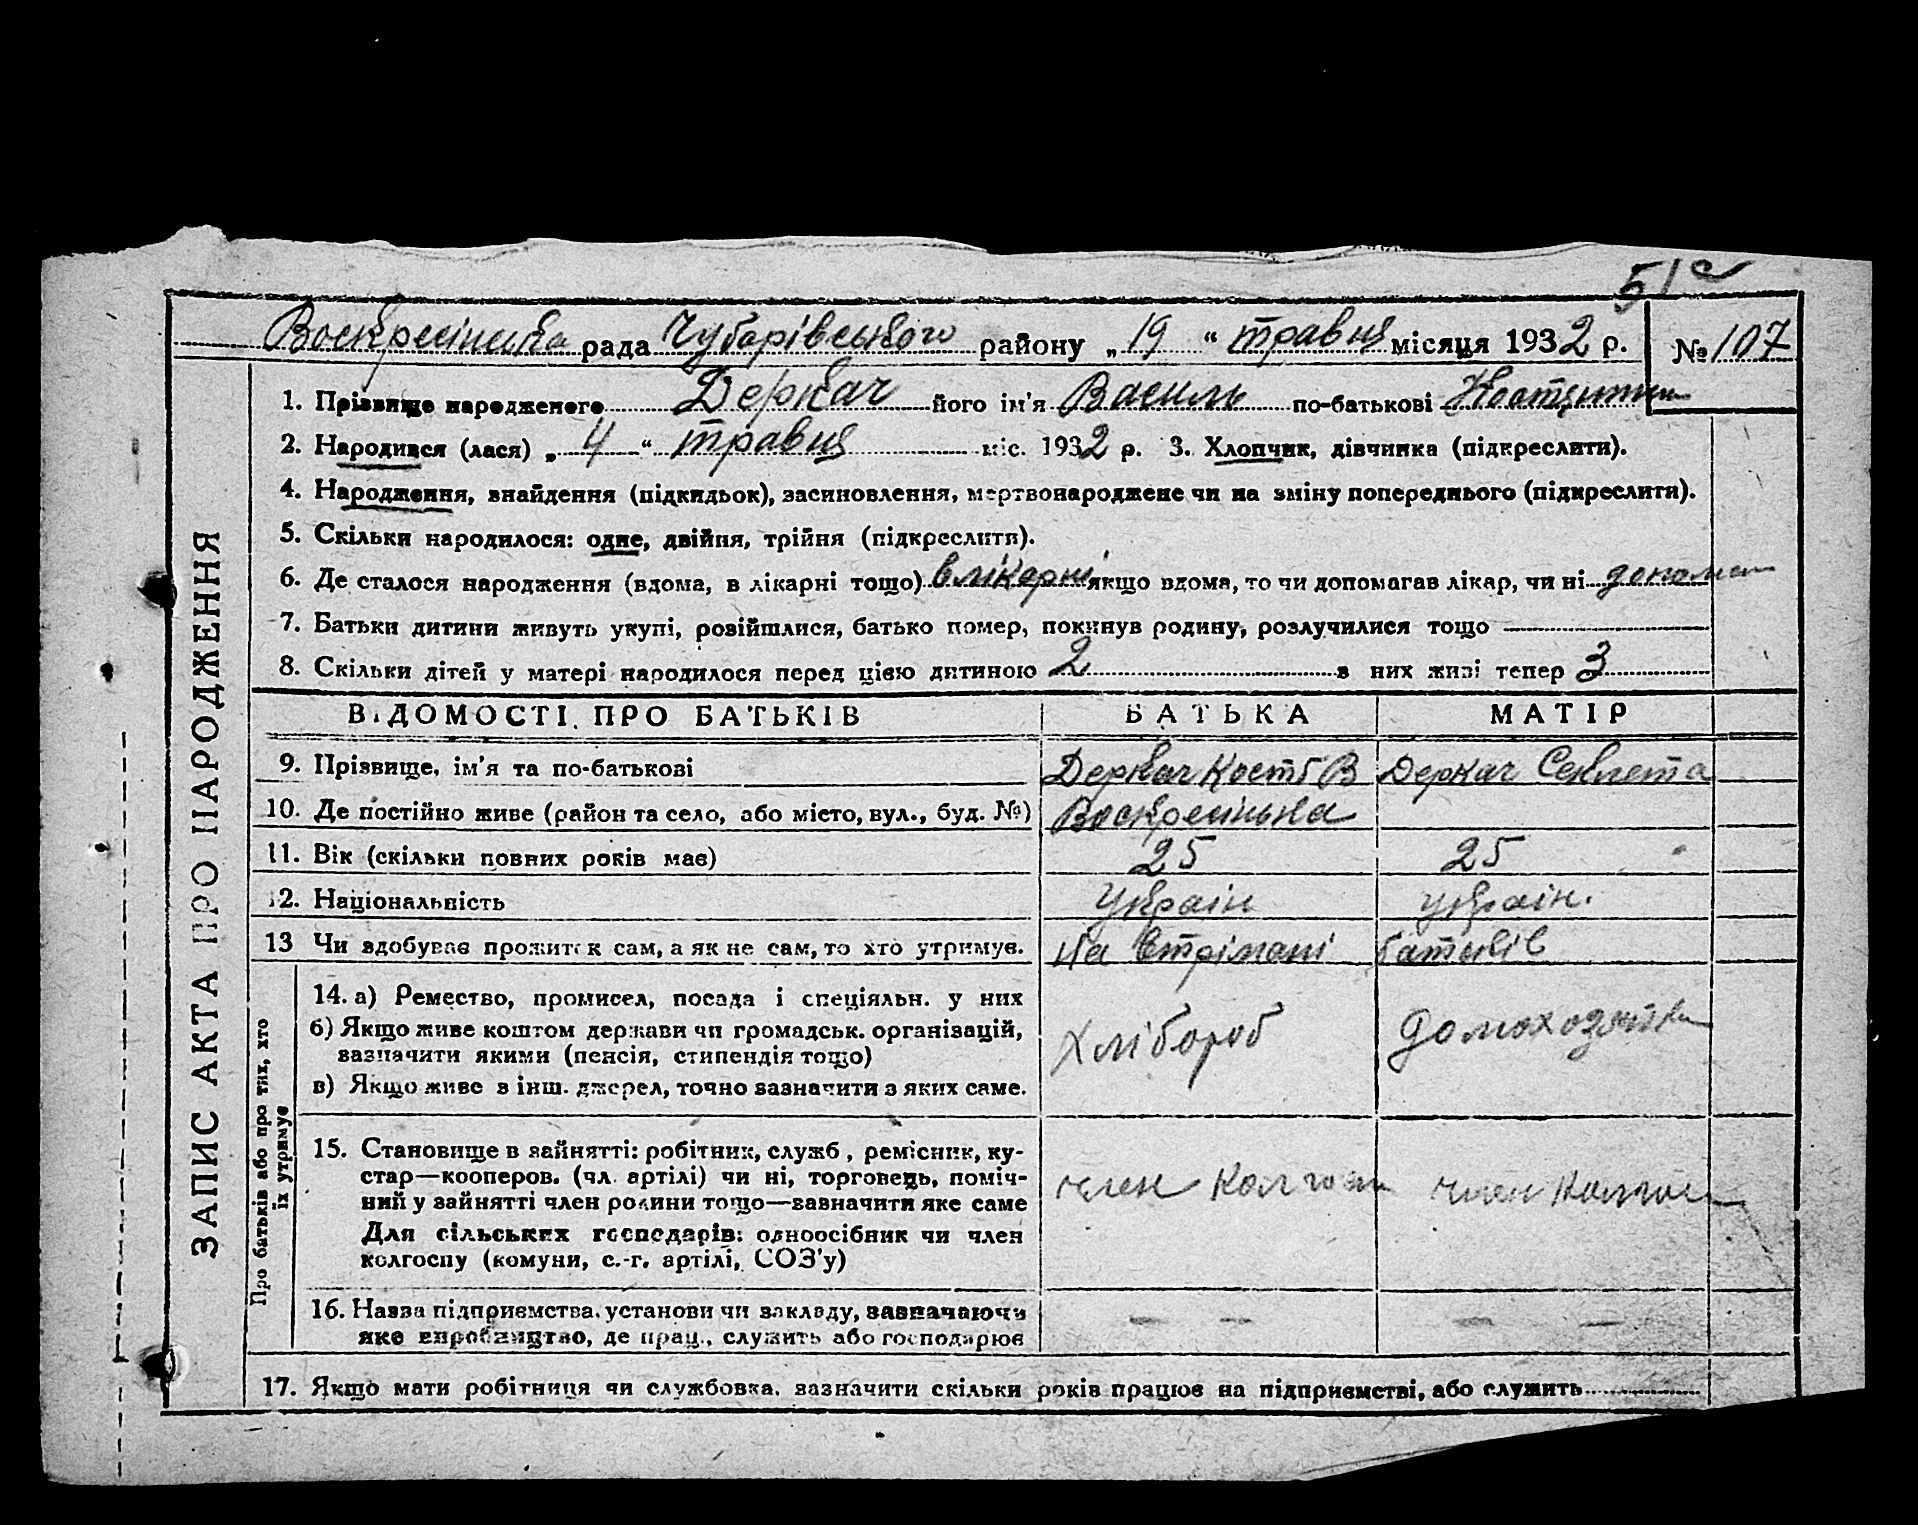 51
Воскресінська рада Чубарівського району „ 19 “ травця місяця 1932 р. № 107
ЗАПИС АКТА ПРО НАРОДЖЕННЯ
1. Прізвище народженого Деркач його ім'я Василь по-батькові
2. Народився (лася) „ 4 “ травця міс. 1932 р. 3. Хлопчик, дівчинка (підкреслити).
4. Народження, знайдення (підкидьок), засиновлення, мертвонароджене чи на зміну попереднього (підкреслити).
5. Скільки народилося: одне, двійня, трійня (підкреслити).
6. Де сталося народження (вдома, в лікарні тощо) в лікарні якщо вдома, то чи допомагав лікар, чи ні
7. Батьки дитини живуть укупі, розійшлися, батько помер, покинув родину, розлучилися тощо
8. Скільки дітей у матері народилося перед цією дитиною 2 з них живі тепер 3
ВІДОМОСТІ ПРО БАТЬКІВ БАТЬКА МАТІР
9. Прізвище, ім'я та по-батькові Деркач Кост В Деркач Секлета
10. Де постійно живе (район та село, або місто, вул., буд. №) Воскресінька
11. Вік (скільки повних років має) 25 25
12. Національність Украін украін.
13 Чи здобуває прожиток сам, а як не сам, то хто утримує. На втрімані батьків
Про батьків або про тих, хто їх утримує
14. а) Ремество, промисел, посада і спеціяльн. у них
б) Якщо живе коштом держави чи громадськ. організацій,
зазначити якими (пенсія, стипендія тощо)
в) Якщо живе з інш. джерел, точно зазначити з яких саме.
Хлібороб домохозяйка
15. Становище в зайнятті: робітник, служб., ремісник, ку-
стар—кооперов. (чл. артілі) чи ні, торговець, поміч-
ний у зайнятті член родини тощо—зазначити яке саме
Для сільських господарів: одноосібник чи член
колгоспу (комуни, с.-г. артілі, СОЗ'у)
член колгосп член колгосп
16. Назва підприємства, установи чи закладу, зазначаючи
яке виробництво, де прац., служить або господарює
— — — —
17. Якщо мати робітниця чи службовка, зазначити скільки років працює на підприємстві, або служить